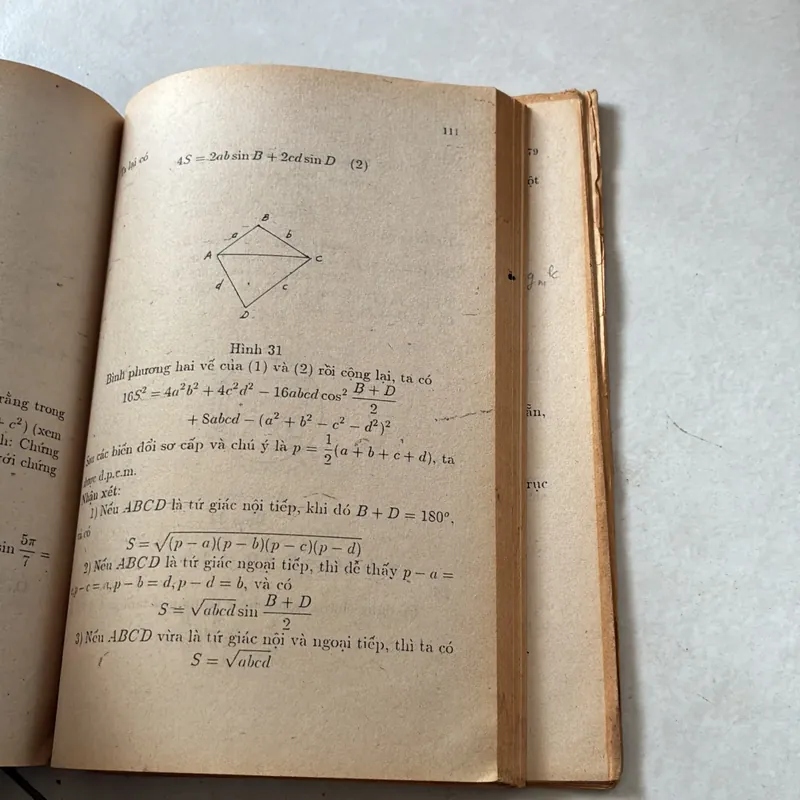 111
lại có 4S = 2ab sin B + 2cd sin D (2)
B
a b
A C
d c
D
Hình 31
Bình phương hai vế của (1) và (2) rồi cộng lại, ta có
16S² = 4a²b² + 4c²d² − 16abcd cos² (B + D)/2
+ 8abcd − (a² + b² − c² − d²)²
Sau các biến đổi sơ cấp và chú ý là p = 1/2 (a + b + c + d), ta
được d.p.c.m.
Nhận xét:
1) Nếu ABCD là tứ giác nội tiếp, khi đó B + D = 180°,
ta có
S = √(p − a)(p − b)(p − c)(p − d)
2) Nếu ABCD là tứ giác ngoại tiếp, thì dễ thấy p − a =
p − c = a, p − b = d, p − d = b, và có
S = √abcd sin (B + D)/2
3) Nếu ABCD vừa là tứ giác nội và ngoại tiếp, thì ta có
S = √abcd
rằng trong
c²) (xem
h: Chứng
với chứng
sin 5π/7 =
79
ột
ần,
rục